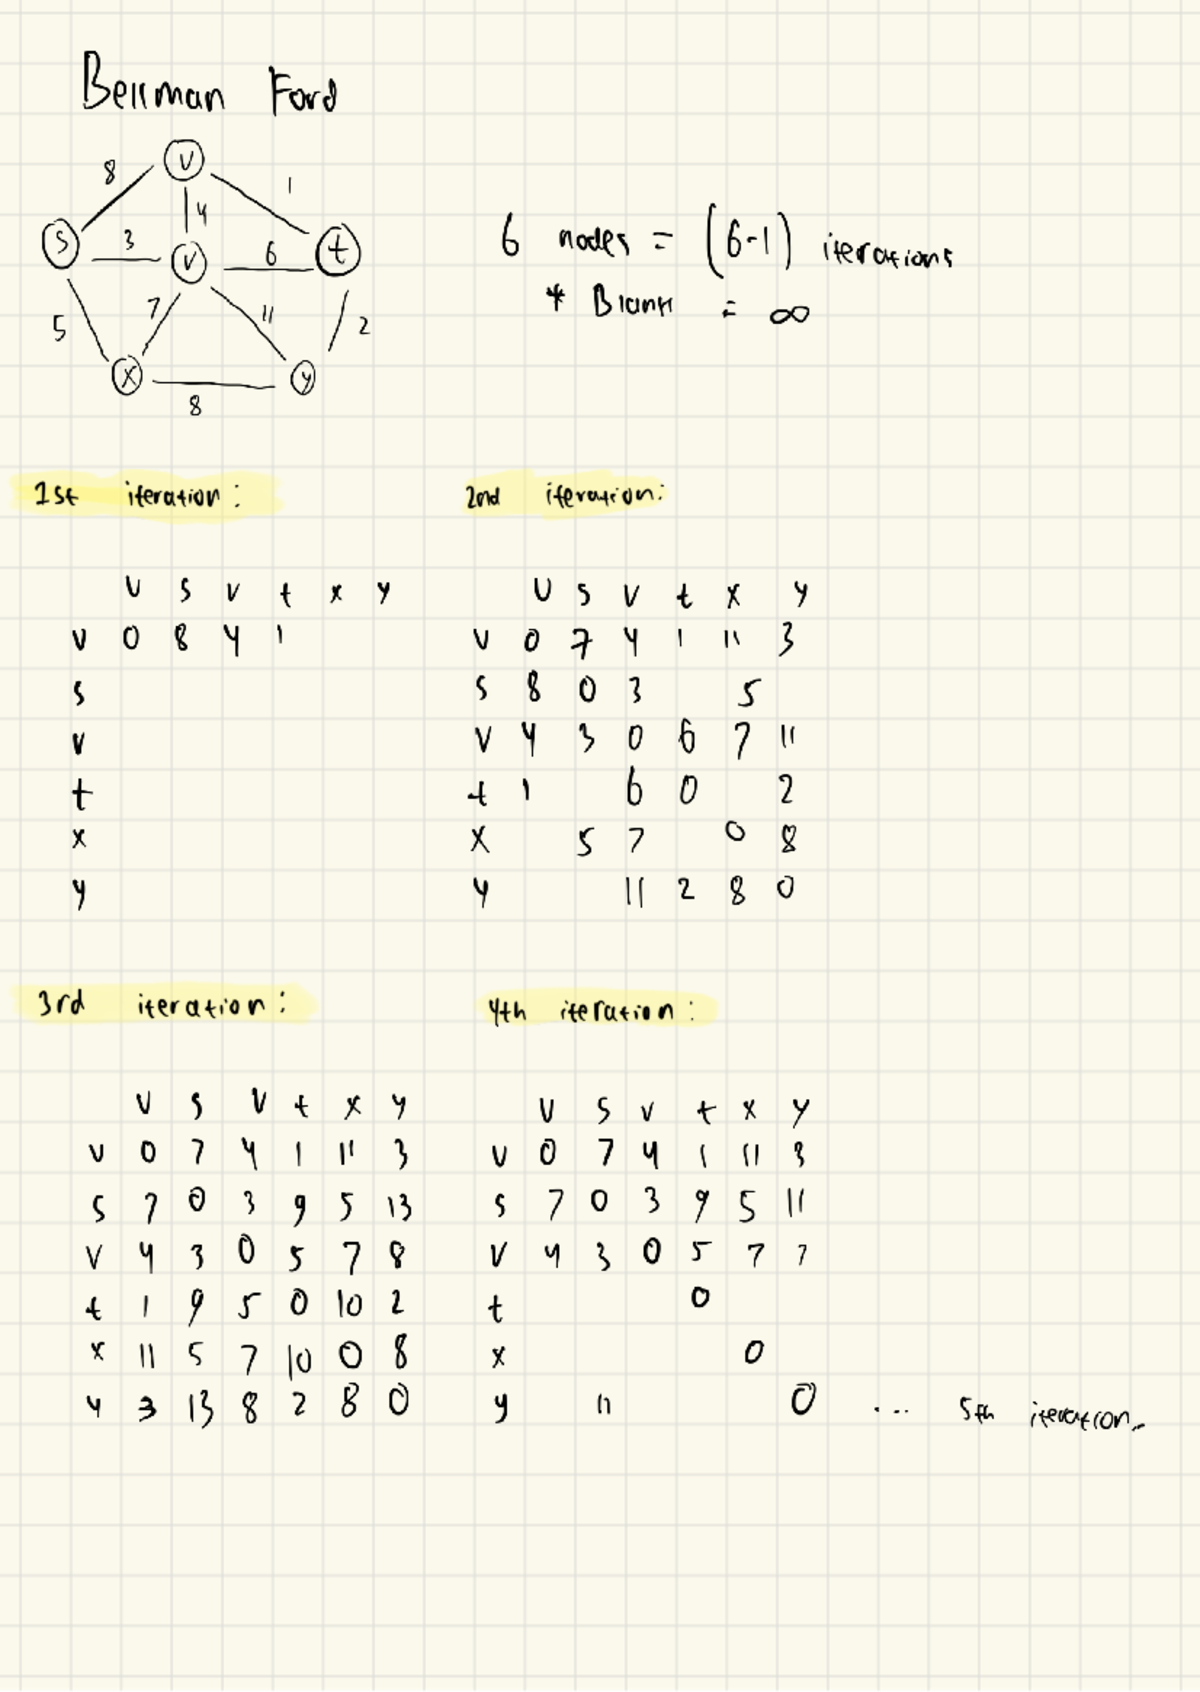 Bellman Ford
8 U 1
S 3 4 V 6 t
5 7 11 2
X 8 y
6 nodes = (6-1) iterations
* Blank = ∞
1st iteration:
U S V t x y
U 0 8 4 1
S
V
t
x
y
2nd iteration:
U S V t X y
U 0 7 4 1 11 3
S 8 0 3 5
V 4 3 0 6 7 11
t 1 6 0 2
X 5 7 0 8
y 11 2 8 0
3rd iteration:
U S V t x y
U 0 7 4 1 11 3
S 7 0 3 9 5 13
V 4 3 0 5 7 8
t 1 9 5 0 10 2
x 11 5 7 10 0 8
y 3 13 8 2 8 0
4th iteration:
U S V t x y
U 0 7 4 1 11 3
S 7 0 3 9 5 11
V 4 3 0 5 7 7
t 0
x 0
y 11 0 ... 5th iteration..